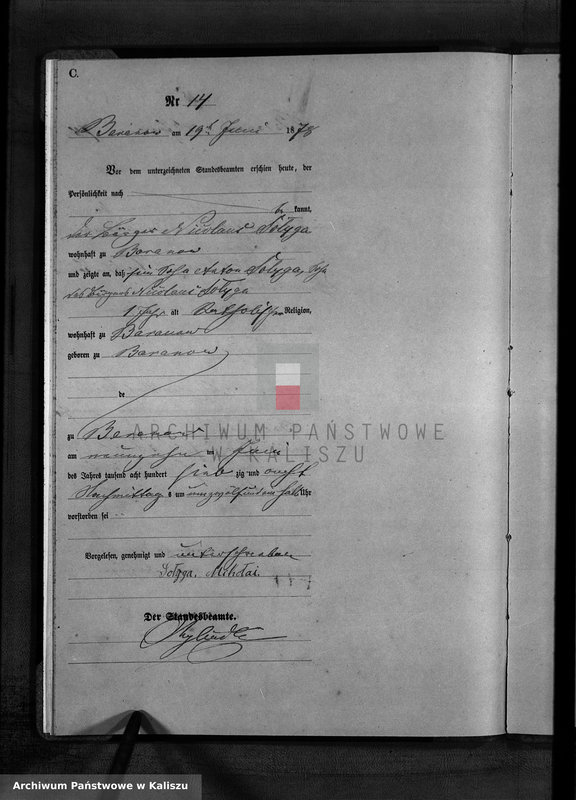 C.
Nr 14
Baranow am 19t Juni 1878
Vor dem unterzeichneten Standesbeamten erschien heute, der
Persönlichkeit nach
be kannt,
der Bürger Nicolaus Sołyga
wohnhaft zu Baranow
und zeigte an, daß sein Sohn Anton Sołyga, Sohn
des Bürgers Nicolaus Sołyga
1 Jahr alt Katholischer Religion,
wohnhaft zu Baranow
geboren zu Baranow
de
zu Baranow
am neunzehn ten Juni
des Jahres tausend acht hundert sieb zig und acht
Nachmittag s um halb Uhr
verstorben sei
Vorgelesen, genehmigt und unterschrieben
Sołyga, Mikołai.
Der Standesbeamte.
ARCHIWUM PAŃSTWOWE
W KALISZU
Archiwum Państwowe w Kaliszu